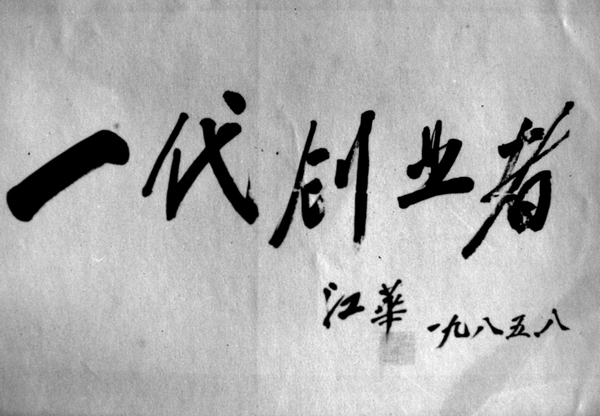 一代创业者
江華 一九八五.八